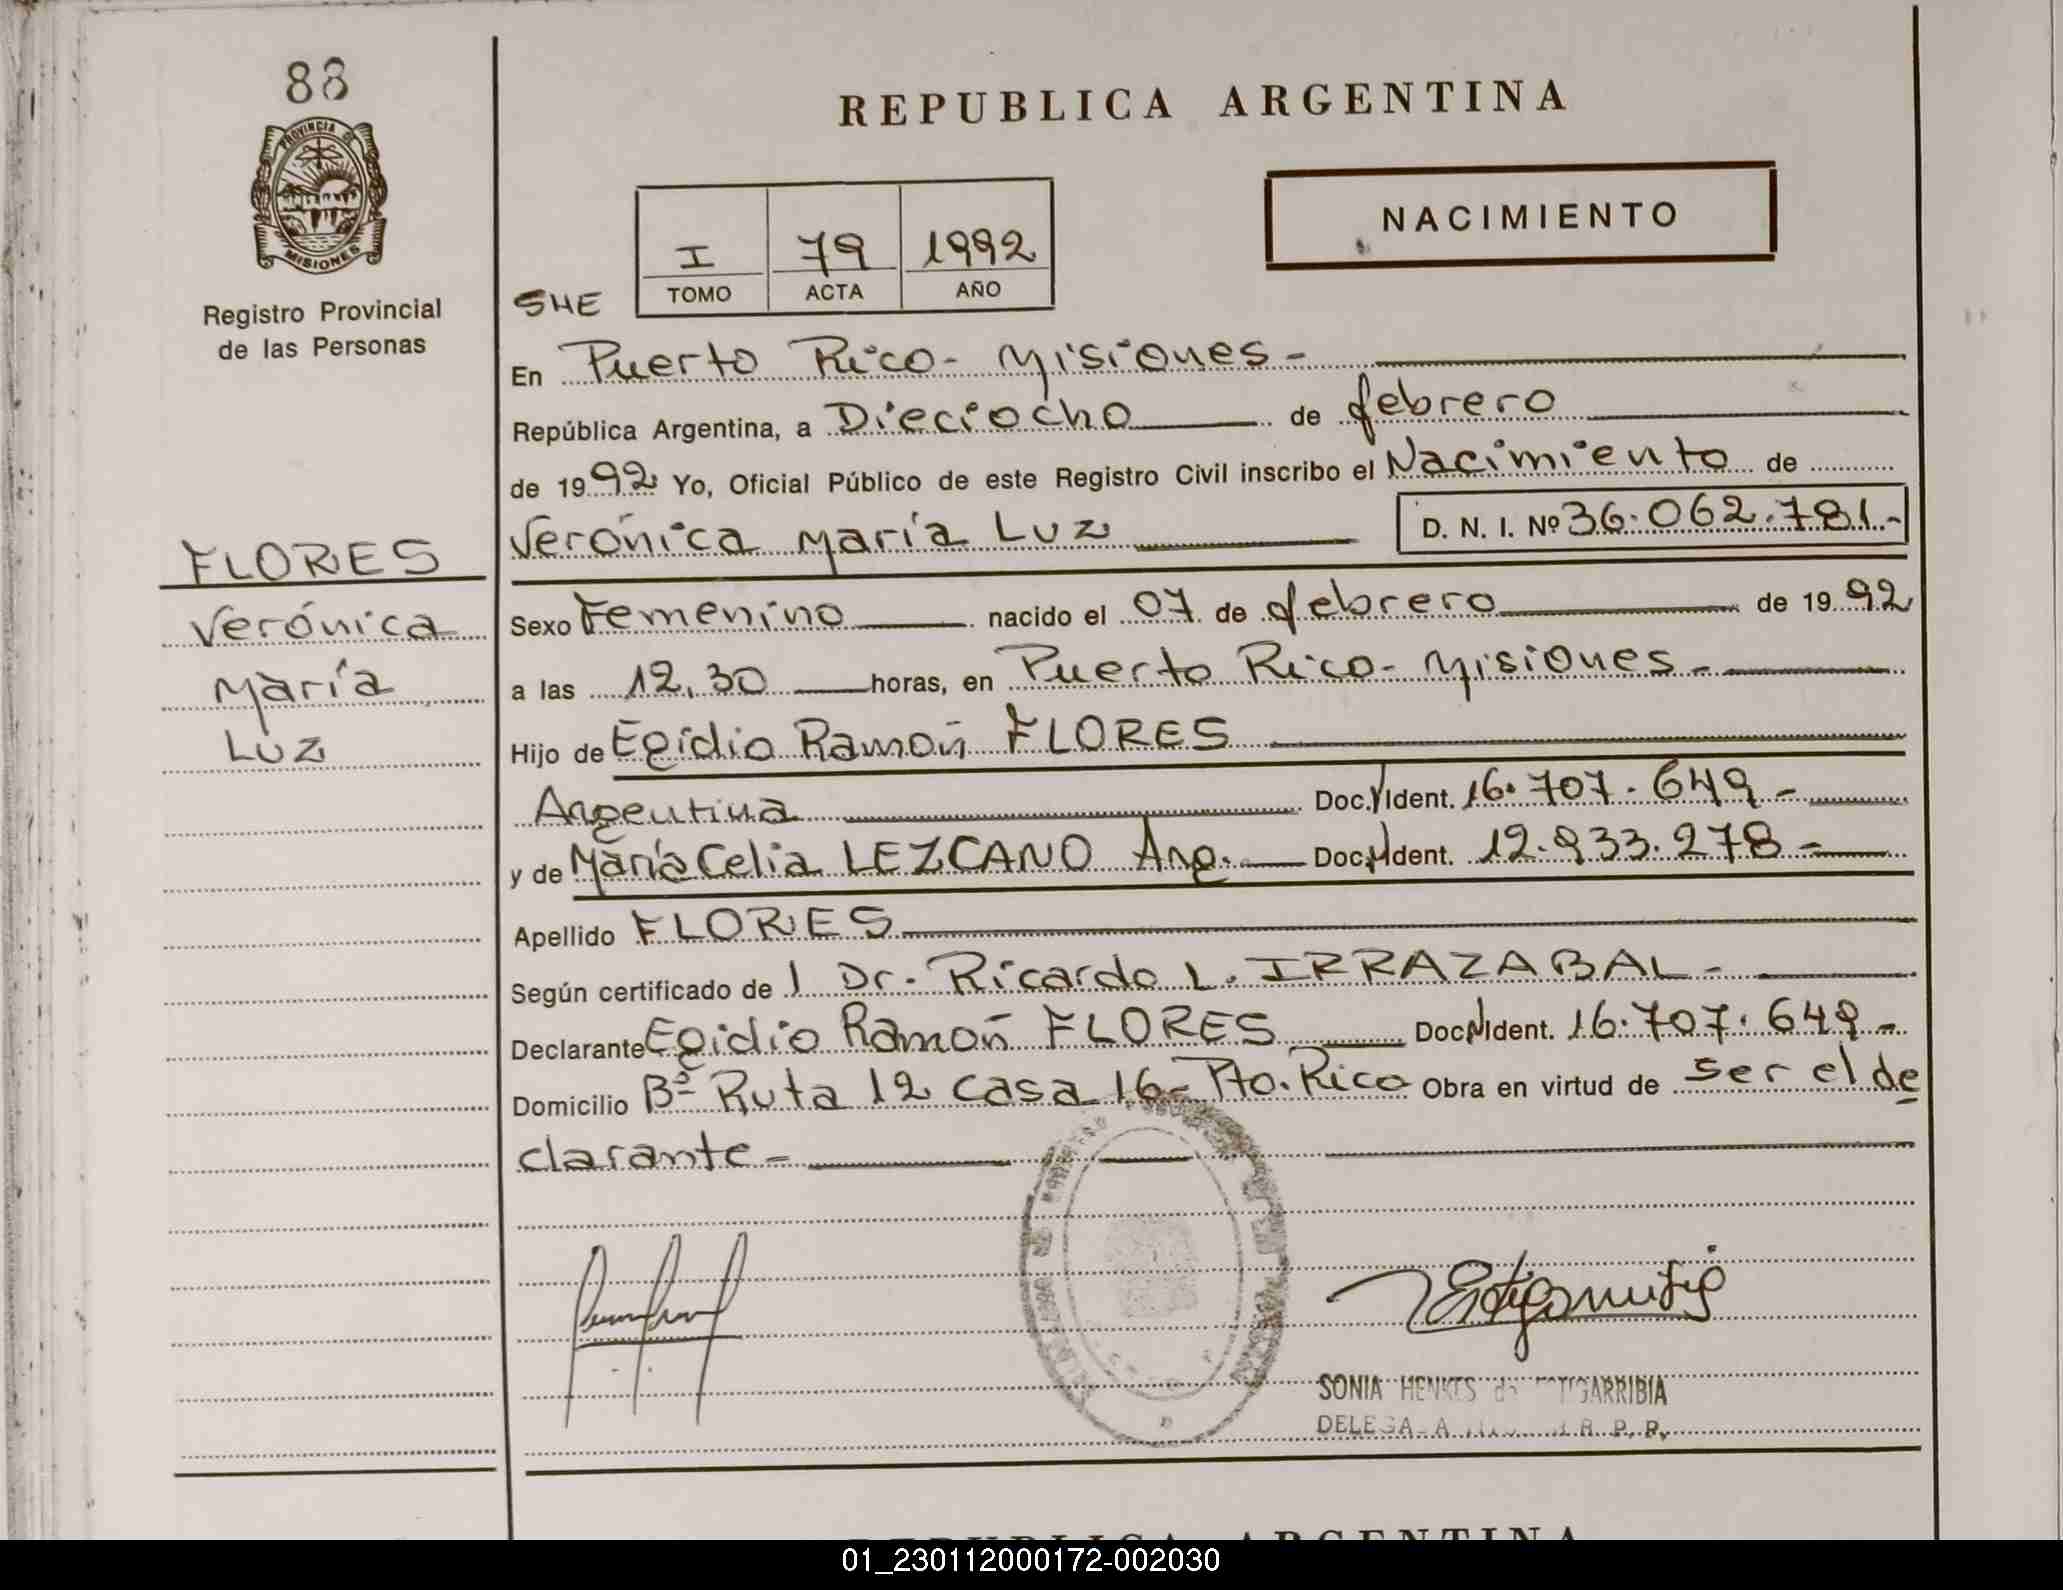 88
PROVINCIA DE
MISIONES
Registro Provincial
de las Personas
FLORES
Verónica
María
Luz
REPUBLICA ARGENTINA
NACIMIENTO
I 79 1992
TOMO ACTA AÑO
SHE
En Puerto Rico - Misiones -
República Argentina, a Dieciocho de febrero
de 1992 Yo, Oficial Público de este Registro Civil inscribo el Nacimiento de
Verónica María Luz D. N. I. Nº 36.062.781.-
Sexo Femenino nacido el 07 de febrero de 1992
a las 12,30 horas, en Puerto Rico - Misiones -
Hijo de Egidio Ramón FLORES
Argentina Doc. Ident. 16.707.649 -
y de María Celia LEZCANO Arg. Doc. Ident. 12.933.278 -
Apellido FLORES
Según certificado de l Dr. Ricardo L. IRRAZABAL -
Declarante Egidio Ramón FLORES Doc. Ident. 16.707.649 -
Domicilio Bº Ruta 12 Casa 16 - Pto. Rico Obra en virtud de ser el de
clarante -
SONIA HENKES de ESTIGARRIBIA
R. P. P.
REPUBLICA ARGENTINA
01_230112000172-002030